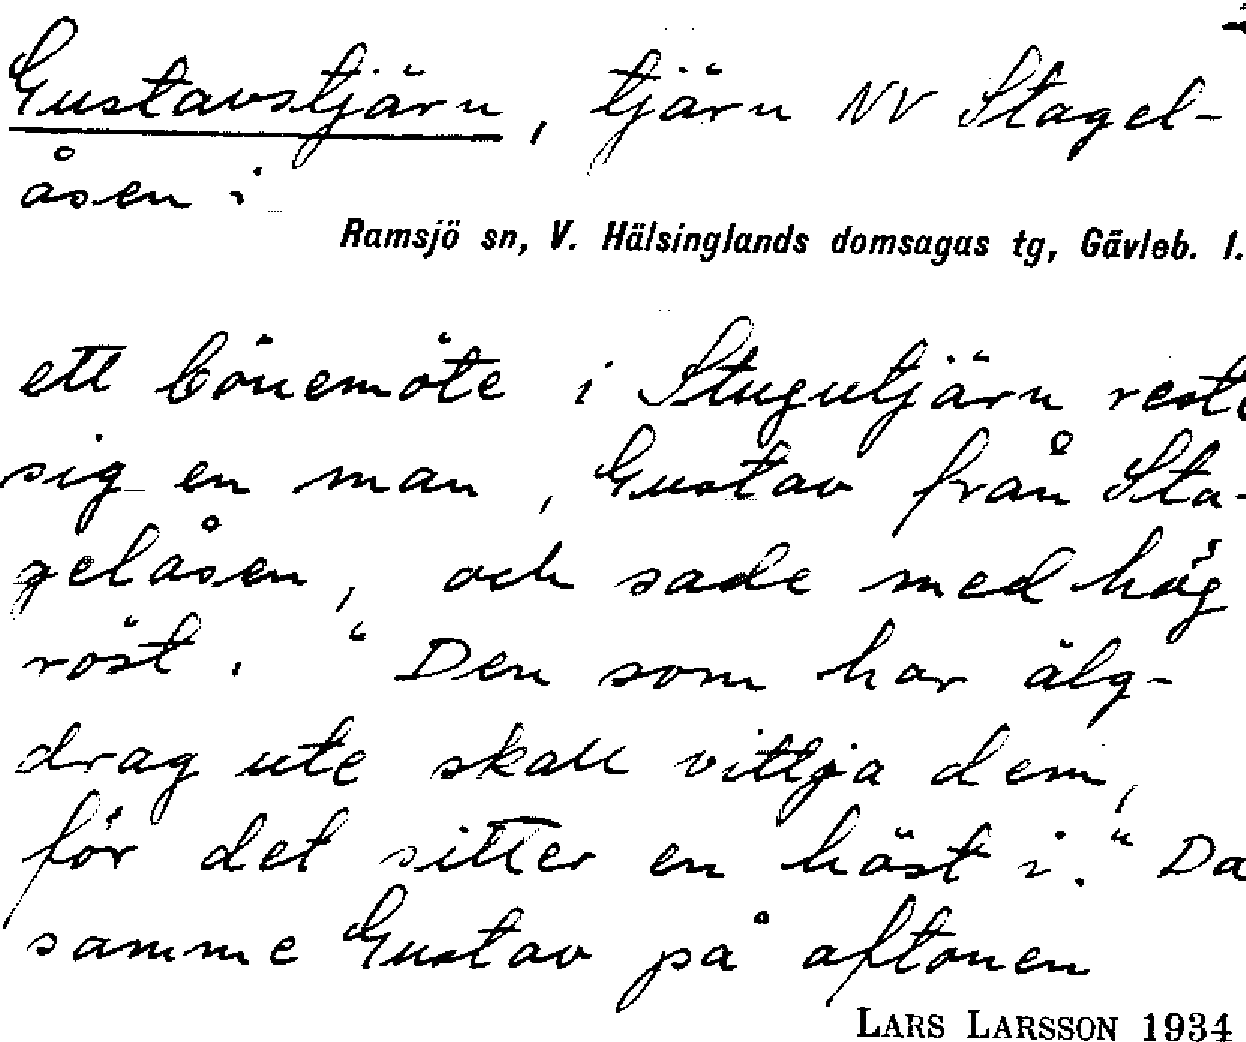 Gustavstjärn, tjärn NV Stagel-
åsen i
Ramsjö sn, V. Hälsinglands domsagas tg, Gävleb. l.
ett bönemöte i Stugutjärn reste
sig en man, Gustav från Sta-
gelåsen, och sade med hög
röst. "Den som har älg-
drag ute skall vittja dem,
för det sitter en häst i." Da
samme Gustav på aftonen
LARS LARSSON 1934